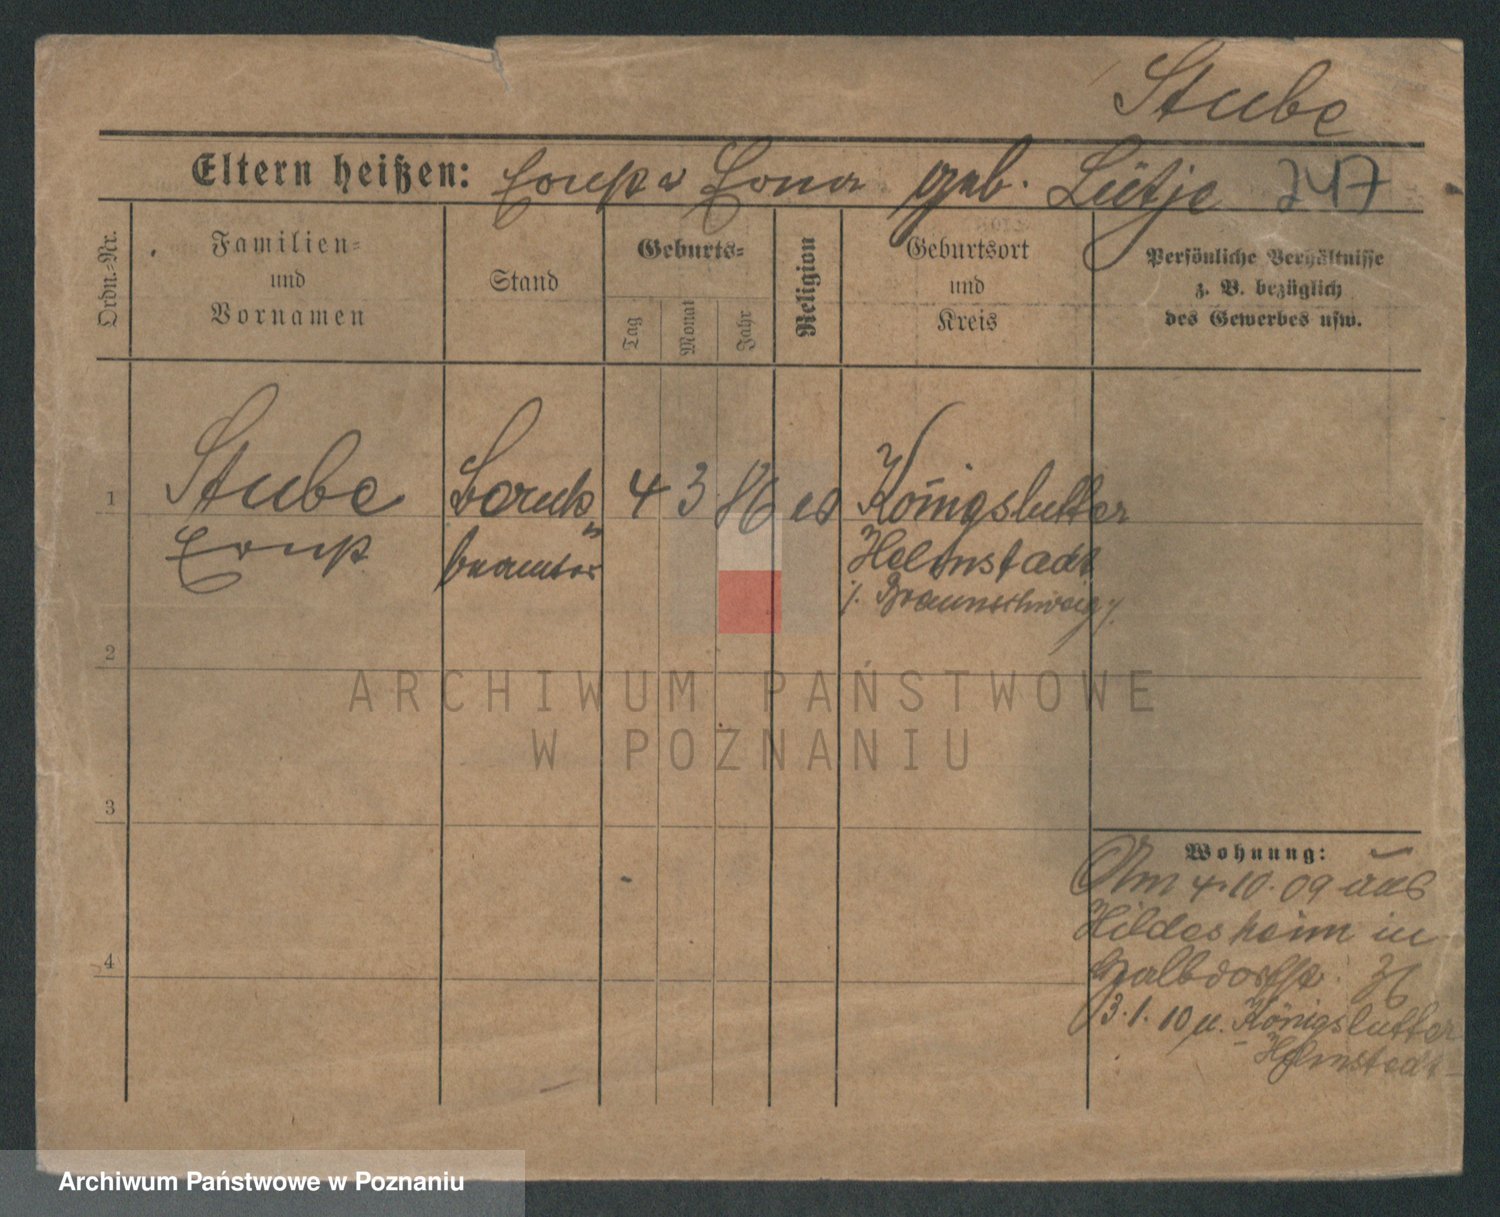 Stube
Eltern heißen: Ernst u Erna geb. Lütje 247
Ordn.-Nr.
Familien-
und
Vornamen
Stand
Geburts-
Tag
Monat
Jahr
Religion
Geburtsort
und
Kreis
Persönliche Verhältnisse
z. B. bezüglich
des Gewerbes usw.
1
Stube Bank 4 3 86 ev Königslutter
Ernst beamter Helmstadt
/. Braunschweig /.
2
3
4
Wohnung:
Am 4.10.09 aus
Hildesheim in
Halbdorfstr. 36
3.1.10 n. Königslutter
Helmstedt
ARCHIWUM PAŃSTWOWE
W POZNANIU
Archiwum Państwowe w Poznaniu